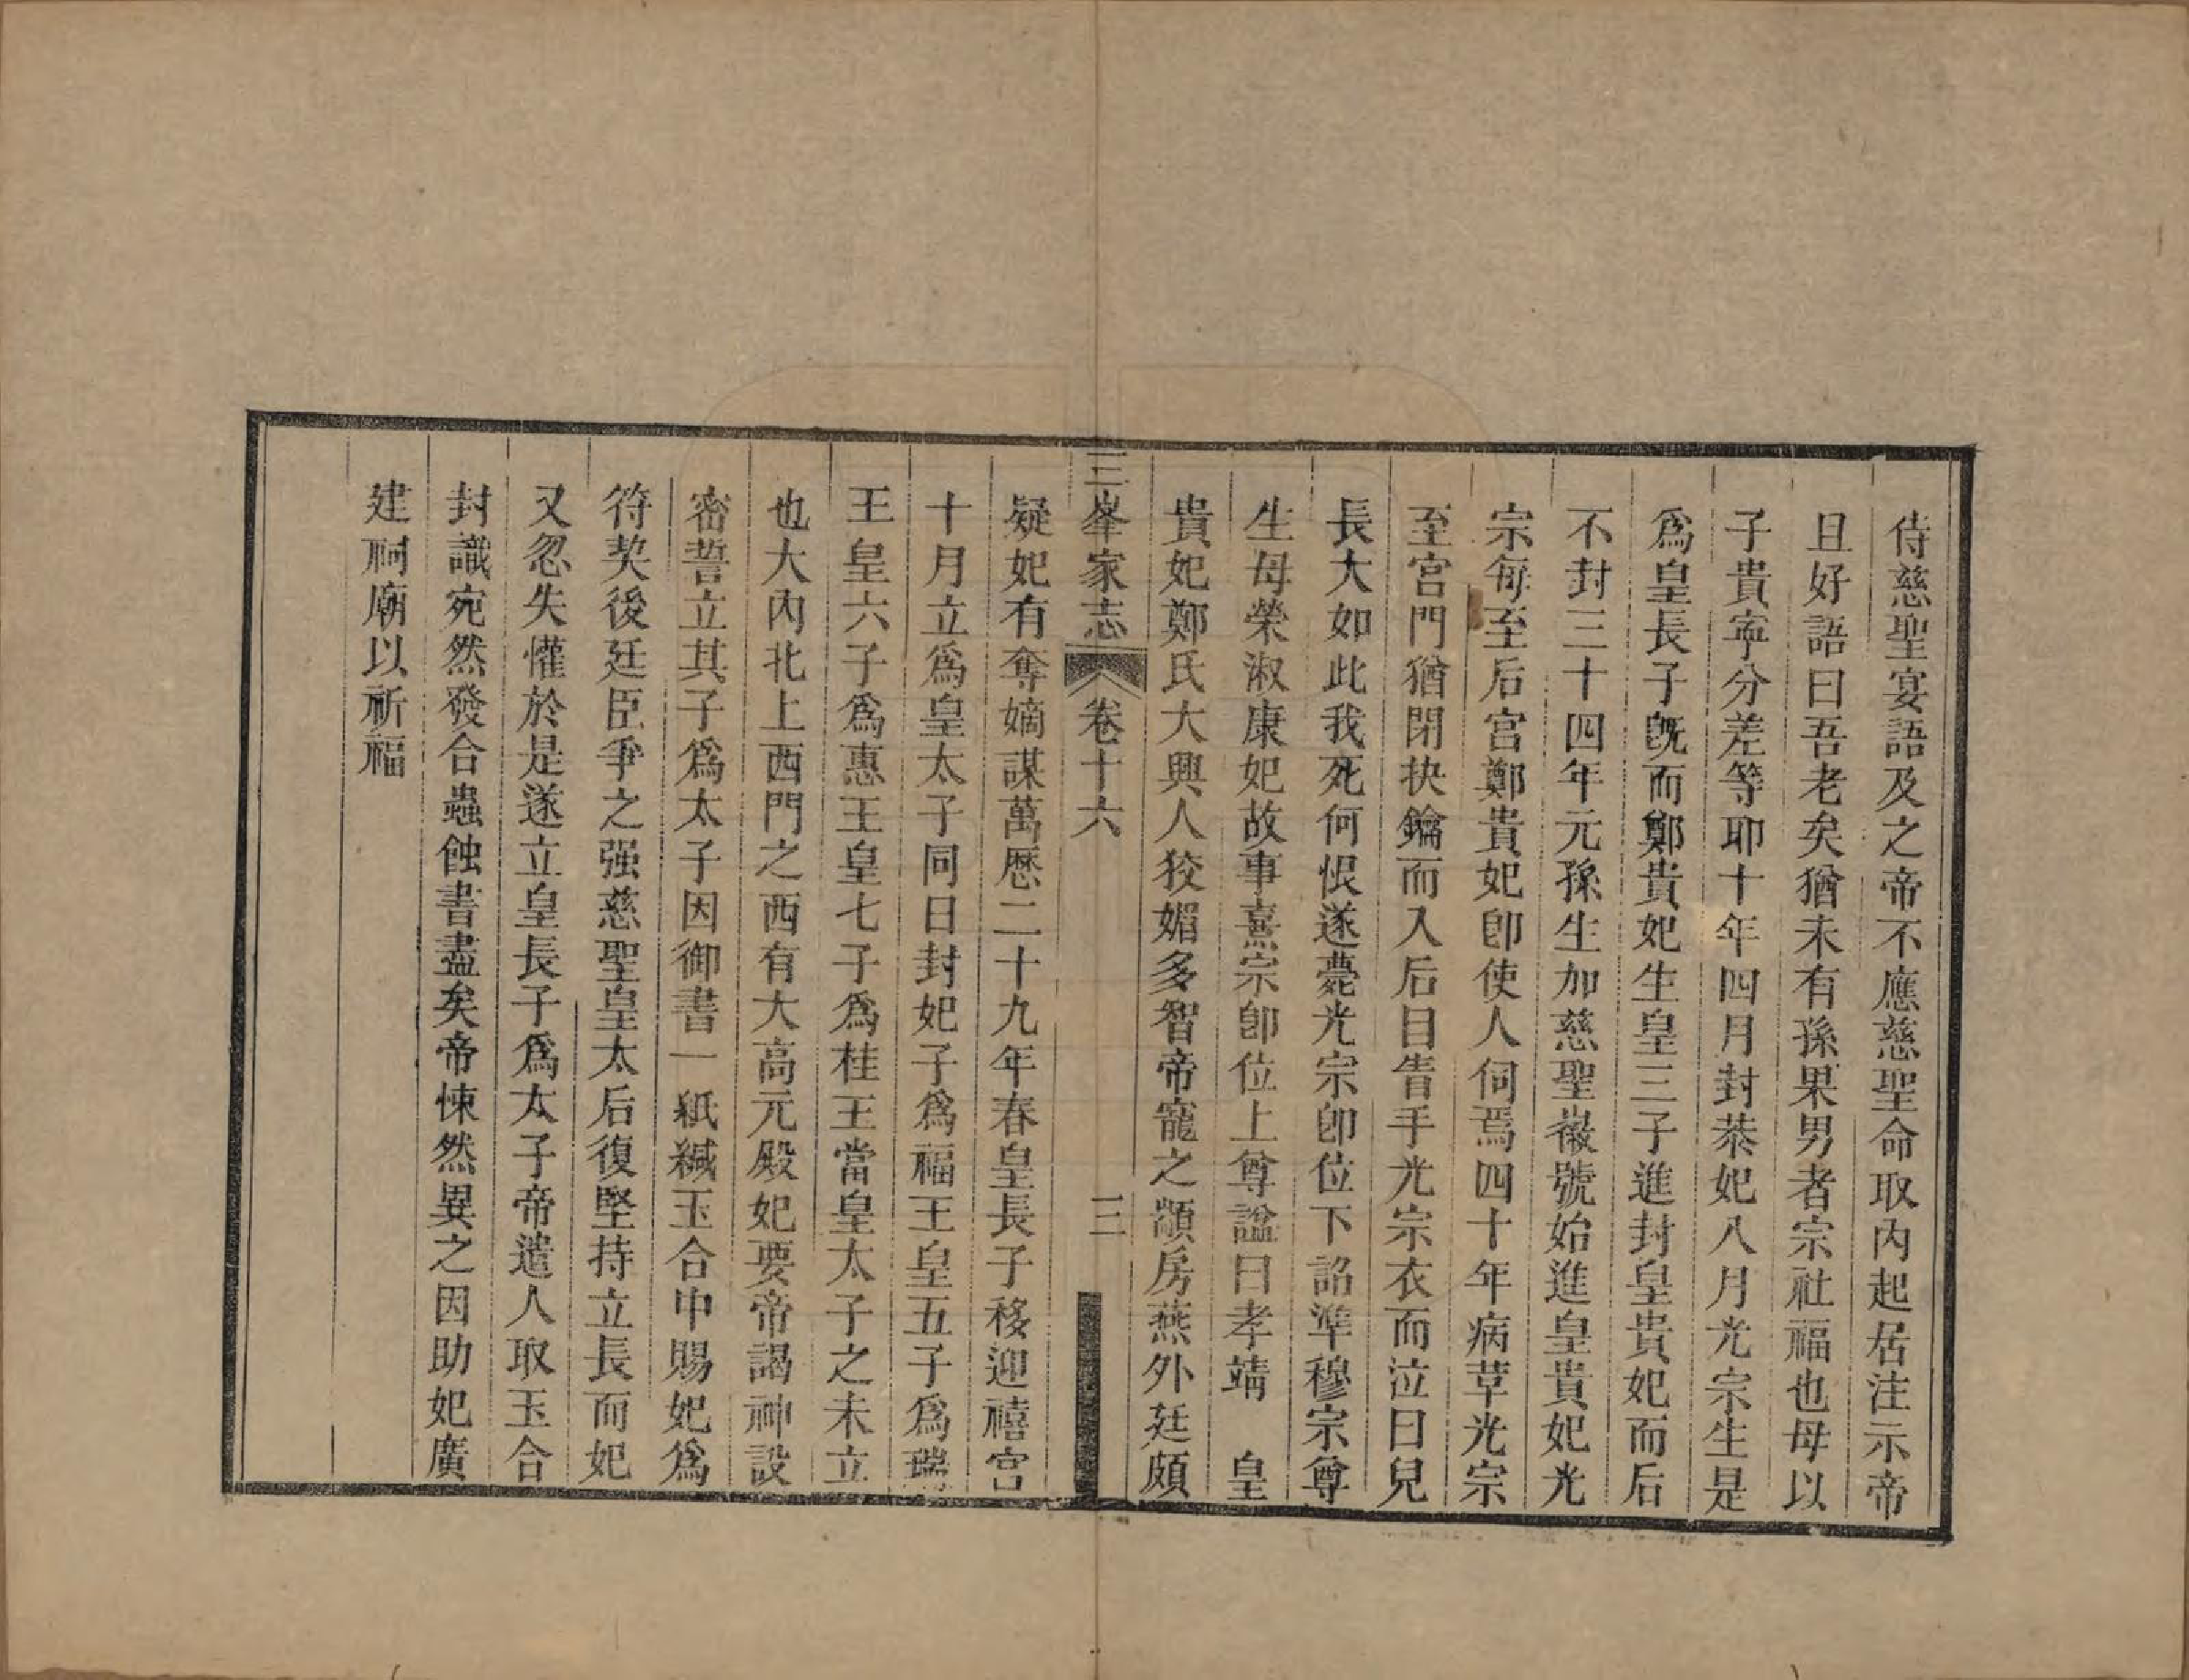 侍慈聖宴語及之帝不應慈聖命取內起居注示帝
且好語曰吾老矣猶未有孫果男者宗社福也母以
子貴寧分差等耶十年四月封恭妃八月光宗生是
爲皇長子旣而鄭貴妃生皇三子進封皇貴妃而后
不封三十四年元孫生加慈聖徽號始進皇貴妃光
宗每至后宮鄭貴妃卽使人伺焉四十年病草光宗
至宮門猶閉抉鑰而入后目眚手光宗衣而泣曰兒
長大如此我死何恨遂薨光宗卽位下詔準穆宗尊
生母榮淑康妃故事熹宗卽位上尊諡曰孝靖　皇
貴妃鄭氏大興人狡媚多智帝寵之顓房燕外廷頗
三峯家志　卷十六　三
疑妃有奪嫡謀萬厯二十九年春皇長子移迎禧宮
十月立爲皇太子同日封妃子爲福王皇五子爲瑞
王皇六子爲惠王皇七子爲桂王當皇太子之未立
也大內北上西門之西有大高元殿妃要帝謁神設
密誓立其子爲太子因御書一紙緘玉合中賜妃爲
符契後廷臣爭之强慈聖皇太后復堅持立長而妃
又忽失懽於是遂立皇長子爲太子帝遣人取玉合
封識宛然發合蟲蝕書盡矣帝悚然異之因助妃廣
建祠廟以祈福